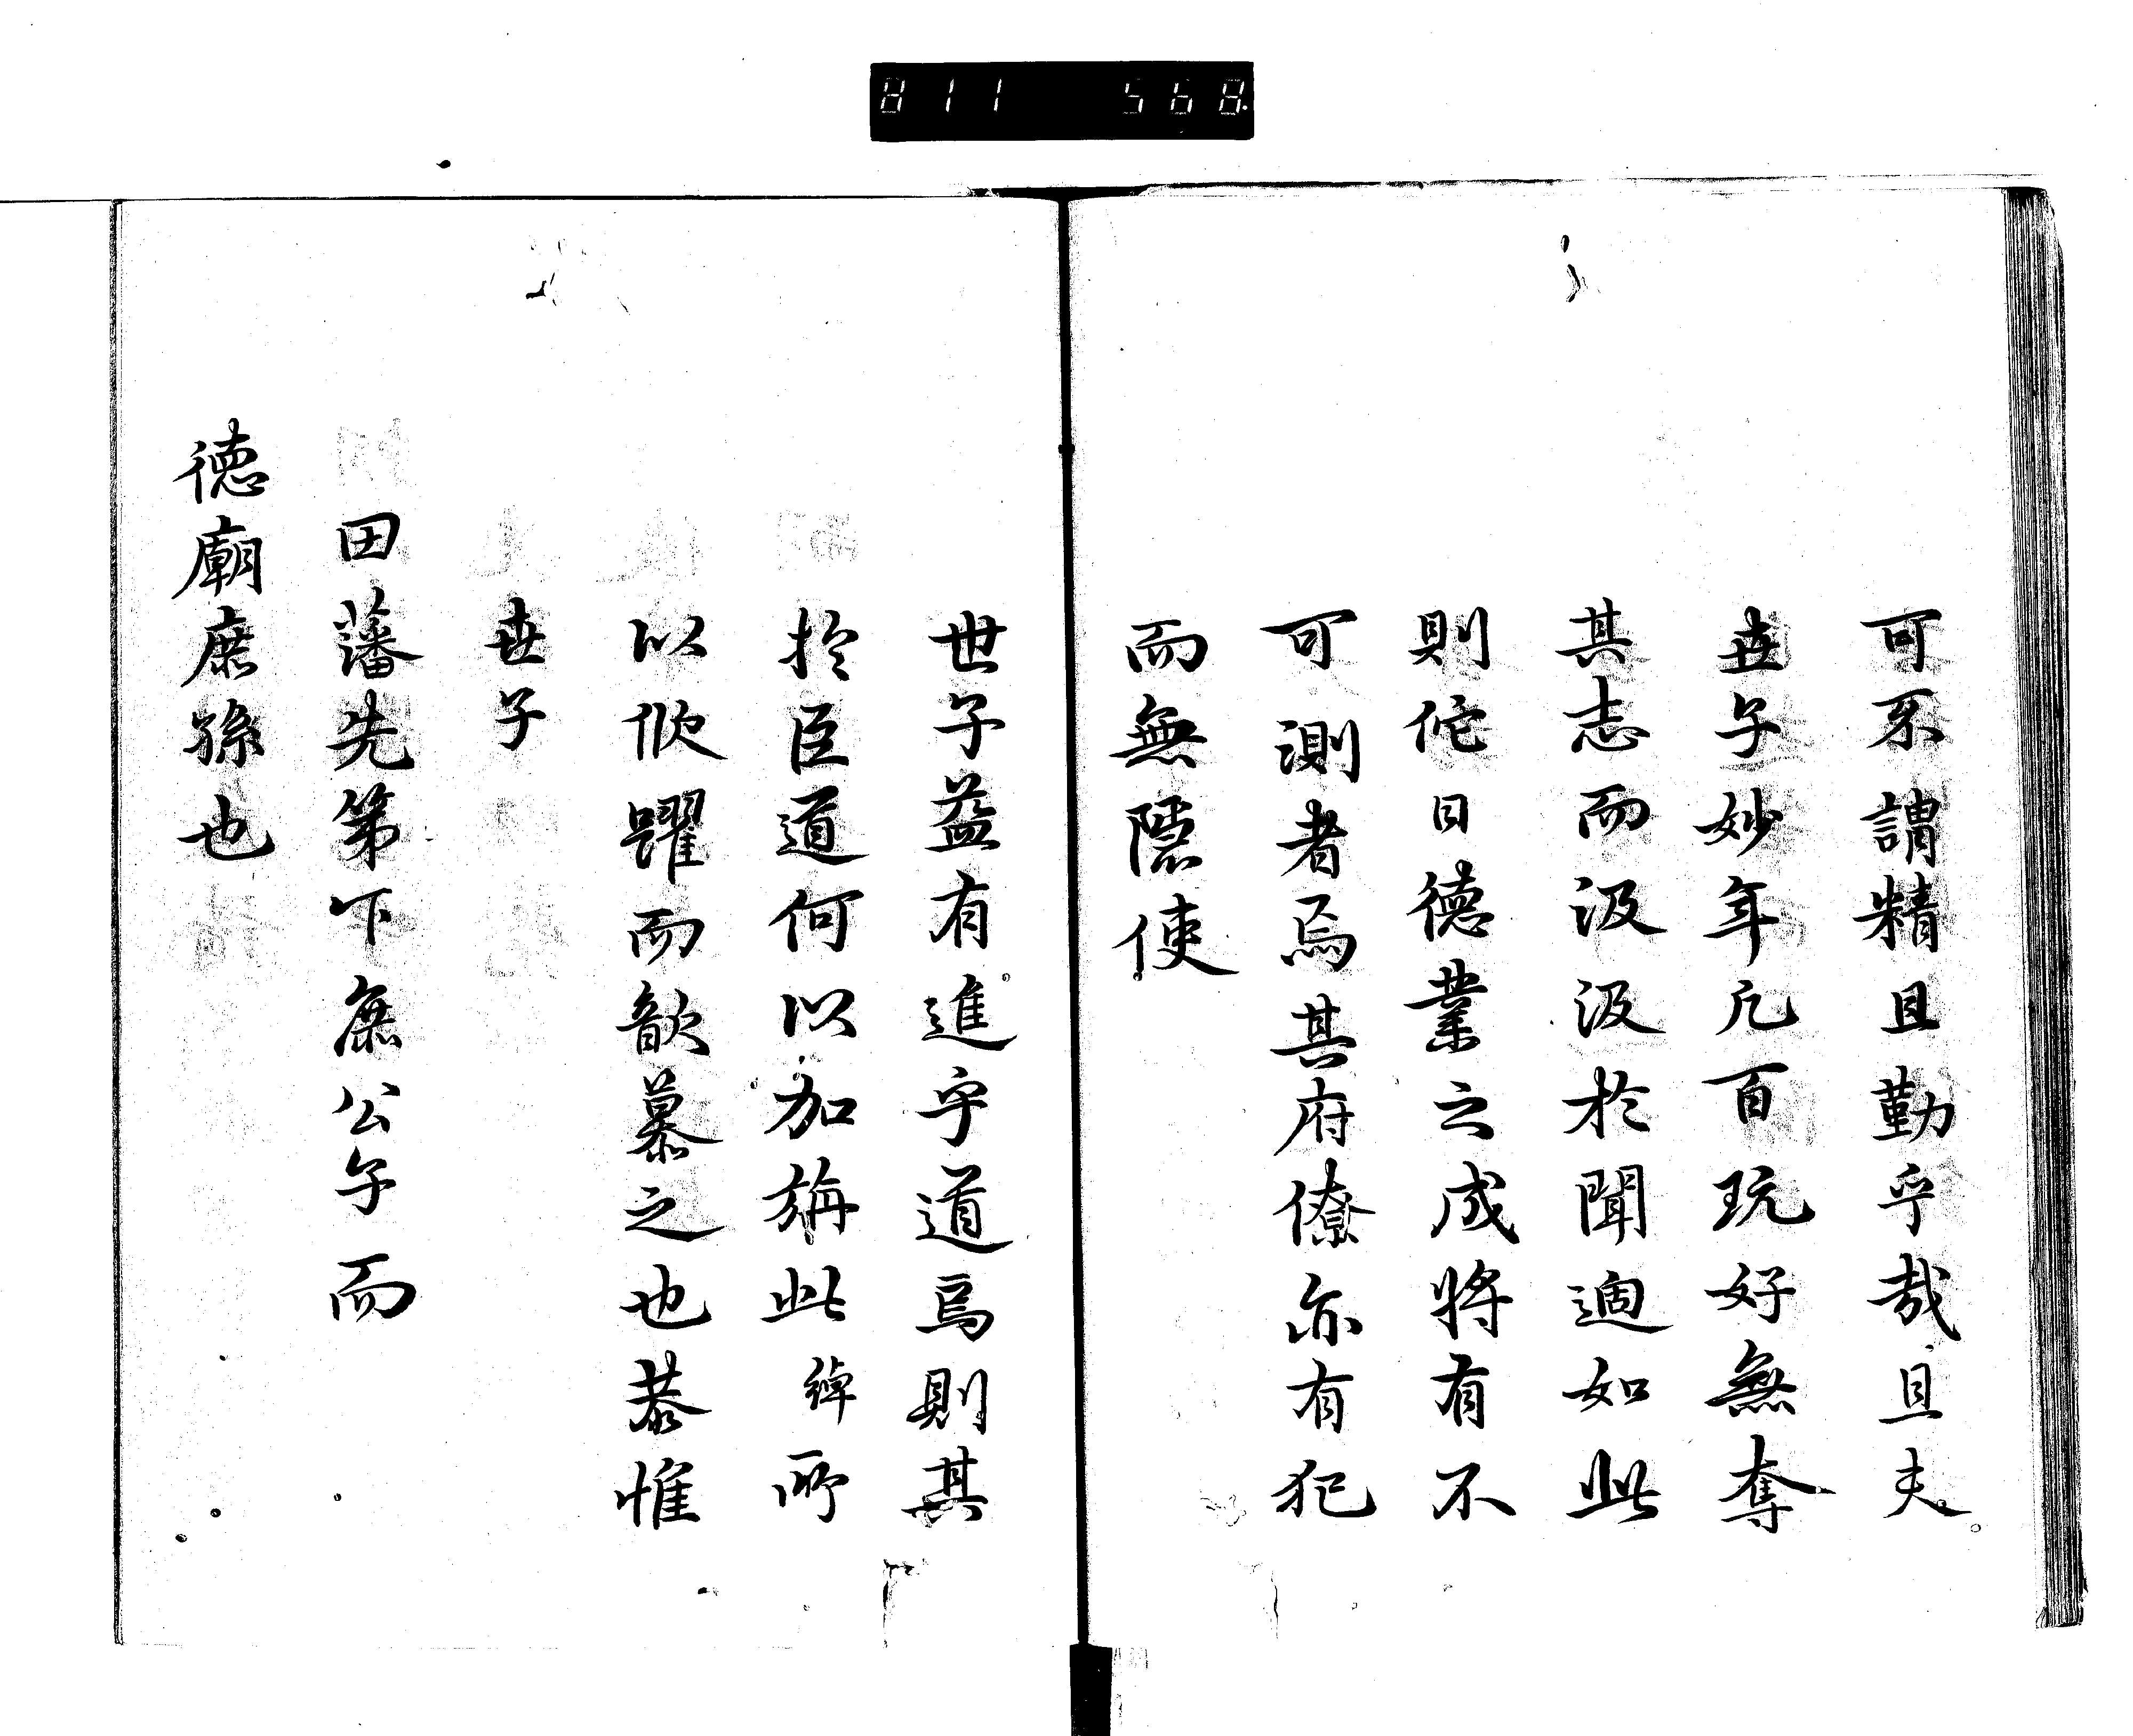 811 568
可不謂精且勤乎哉且夫
世子妙年凡百玩好無奪
其志而汲汲於聞適如此
則佗日德業之成將有不
可測者焉其府僚亦有犯
而無隱使
世子益有進乎道焉則其
於臣道何以加旃此縡所
以欣躍而歆慕之也恭惟
世子
田藩先第下庶公子而
德廟庶孫也